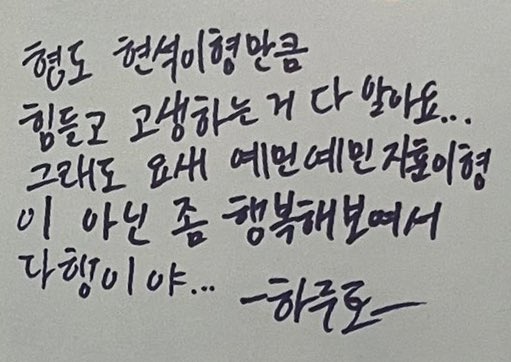 형도 현석이형만큼
힘들고 고생하는 거 다 알아요...
그래도 요새 예민예민 지훈이형
이 아닌 좀 행복해보여서
다행이야...
-하루토-